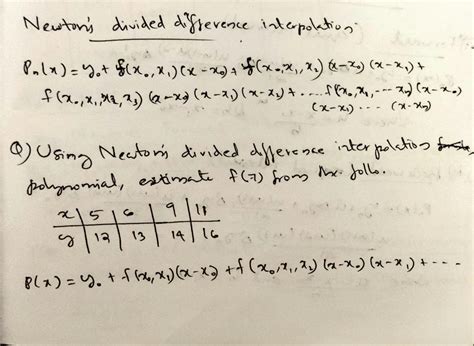 Newton's divided difference interpolation.
Pn(x) = y₀ + f(x₀,x₁)(x-x₀) + f(x₀,x₁,x₂)(x-x₀)(x-x₁) +
f(x₀,x₁,x₂,x₃)(x-x₀)(x-x₁)(x-x₂) + .... f(x₀,x₁,...xₙ)(x-x₀)
(x-x₁) ... (x-xₙ)
Q) Using Newton's divided difference interpolation
polynomial, estimate f(7) from the follo.
x | 5 | 6 | 9 | 11
y | 12 | 13 | 14 | 16
P(x) = y₀ + f(x₀,x₁)(x-x₀) + f(x₀,x₁,x₂)(x-x₀)(x-x₁) + ----